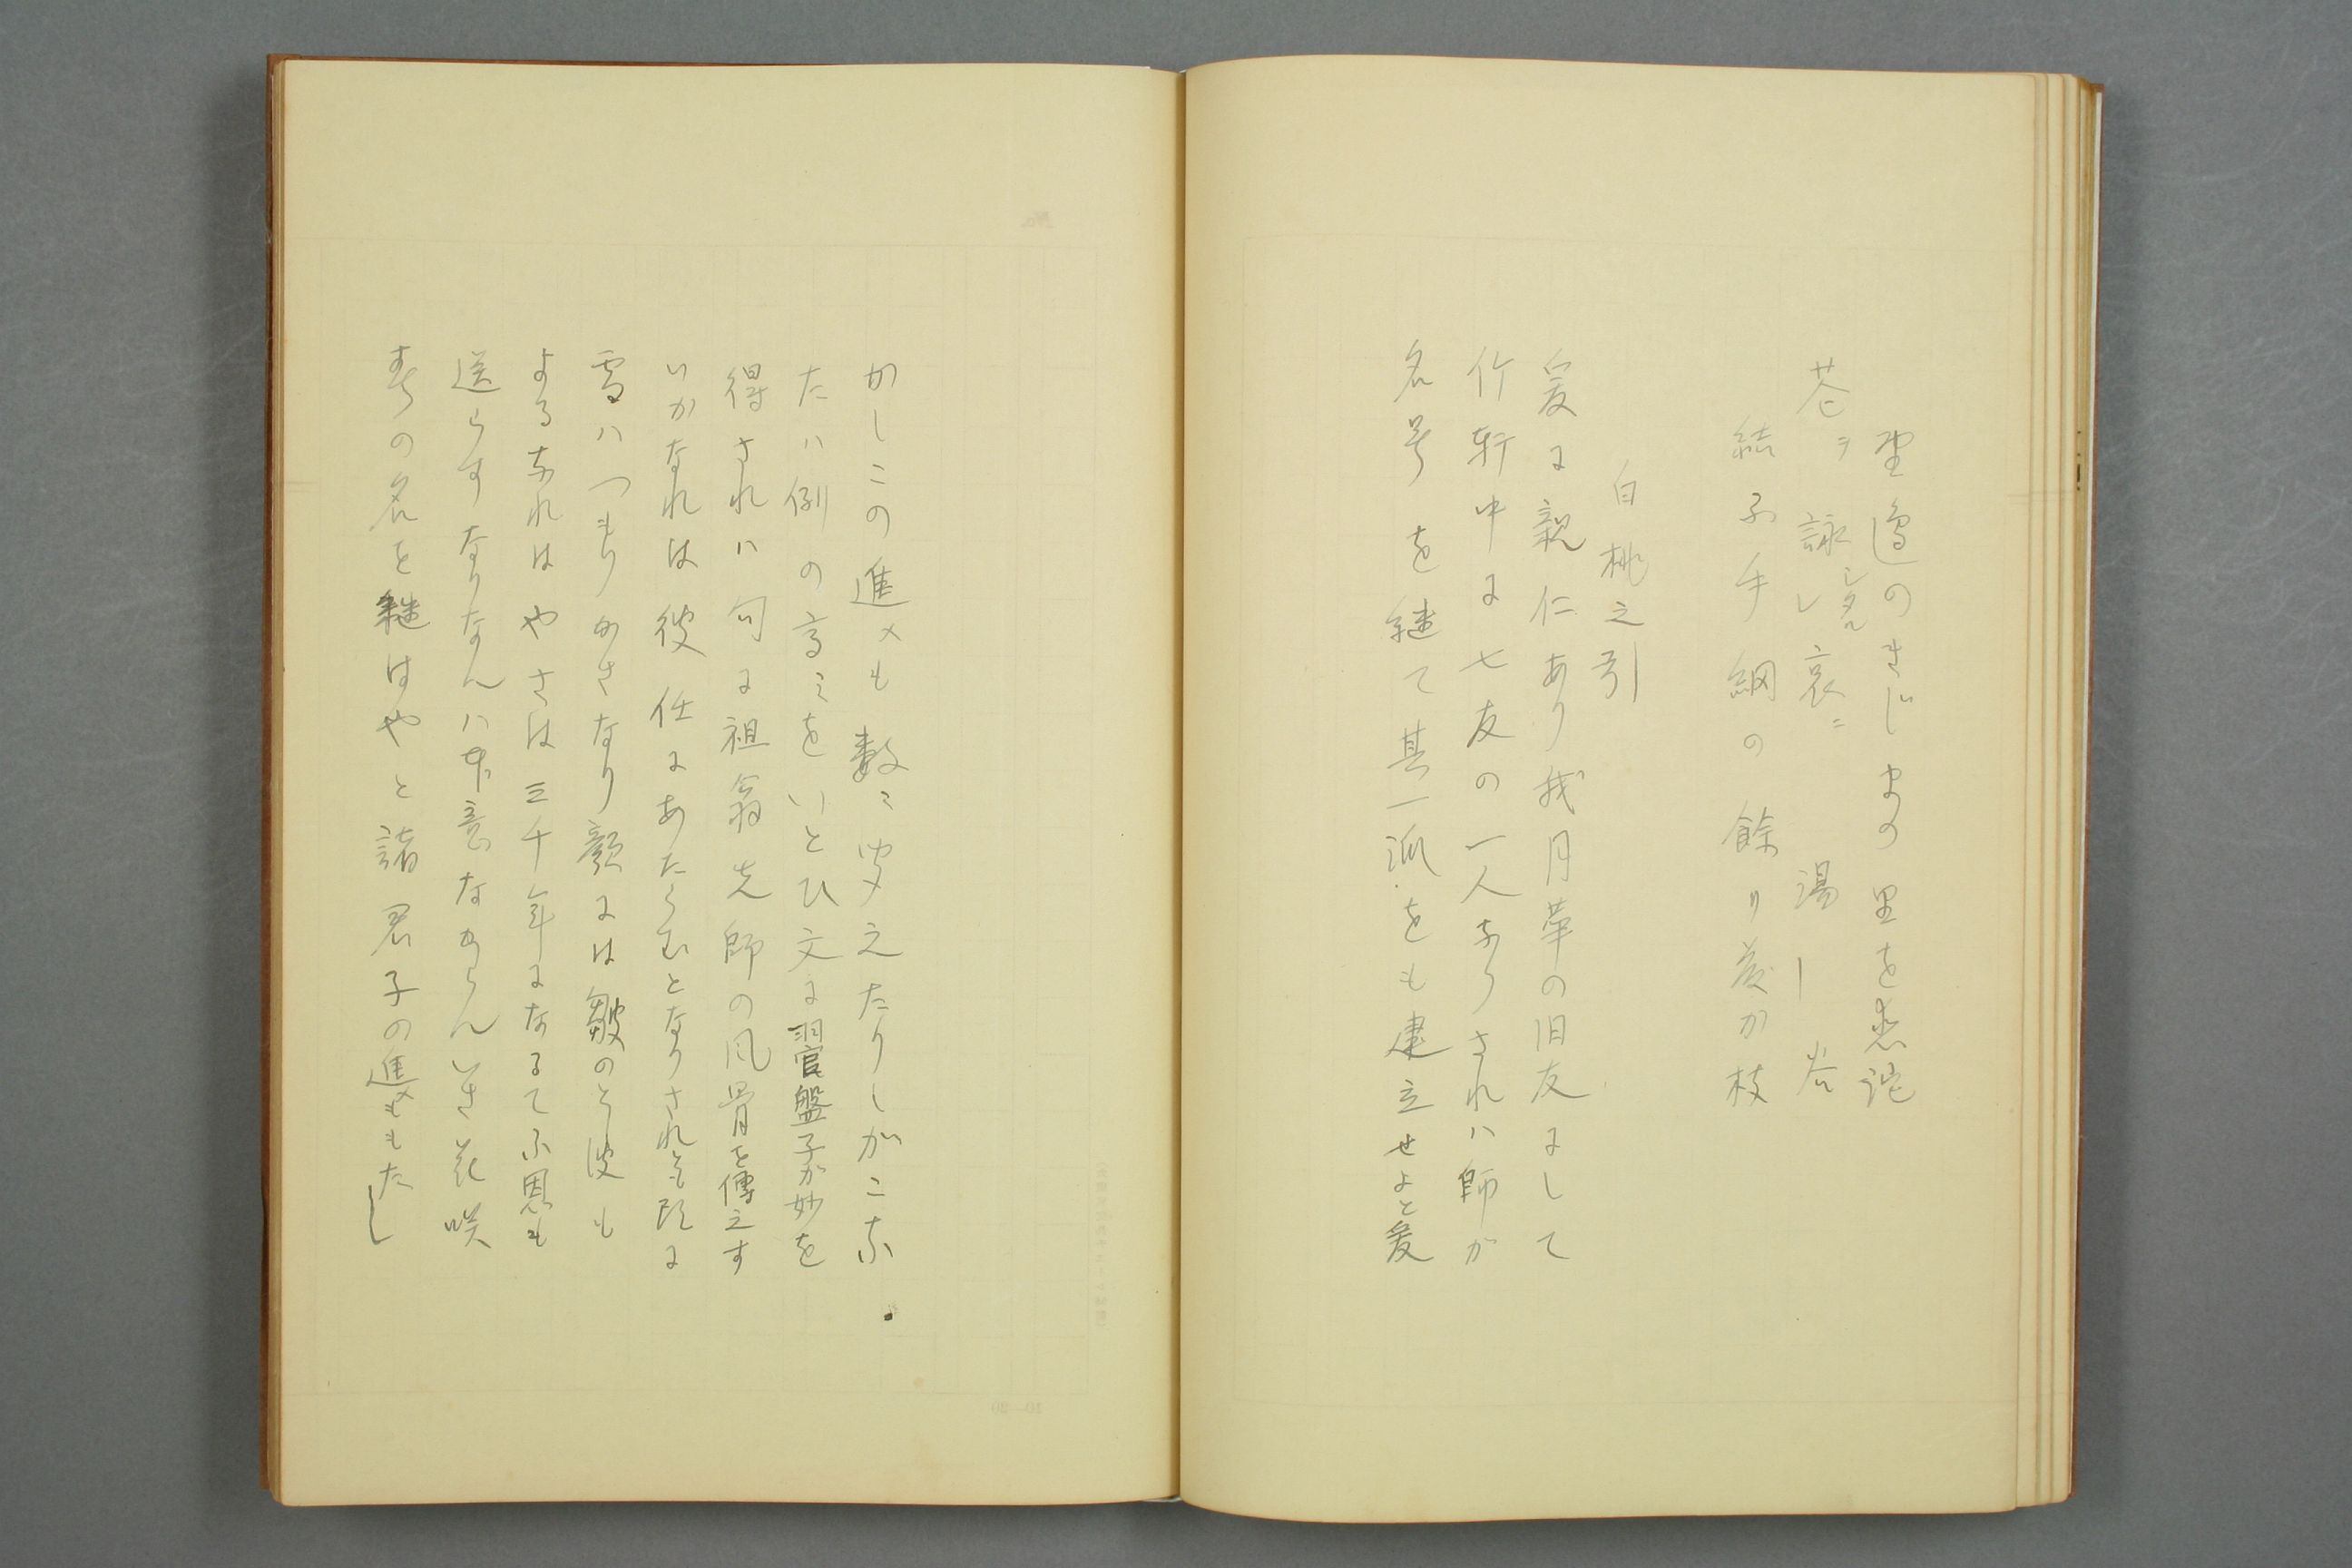 里過のきじまの里を
苍ヲ詠シタルレ哀ニ 湯ー岩
結ふ手綱の餘り芰か枝
白桃之引
爰に親仁あり我月華の旧友にして
竹軒中に七友の一人なりされハ師が
名号を継て其一派をも建立せよと爰
かしこの進メも数ミ安えたりしがこふ
たハ例の高ミをいとひ文に盤子が妙を
得されハ句に祖翁先師の風骨を傳えす
いかなれは彼任にあたらむとなりされとも既に
雪ハつもりかさなり顔には皺のと波も
よるなれはやさは三千年になるてふ恩も
送らすなりなんハ本意なからんいき花咲
春の名を継はやと諸君子の進メもたし